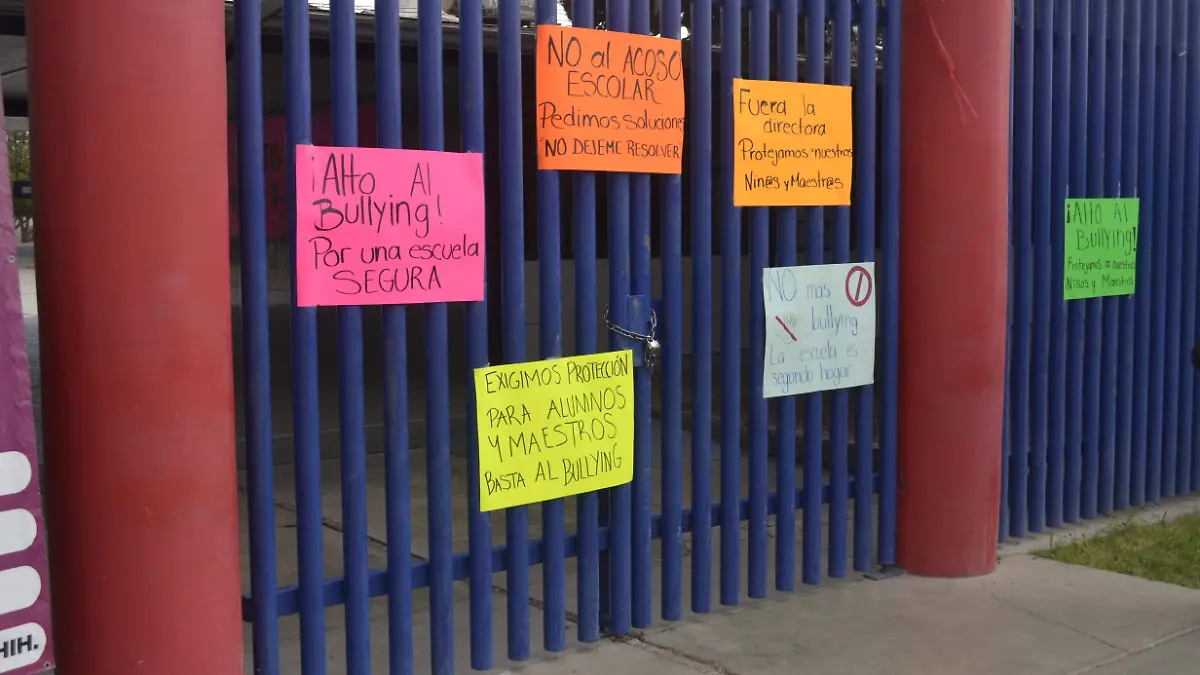 ¡Alto Al
Bullying!
Por una escuela
SEGURA
NO al ACOSO
ESCOLAR
Pedimos soluciones
"NO DEJEME RESOLVER"
Fuera la
directora
Protejamos = nuestros
Niñ@s y Maestr@s
EXIGIMOS PROTECCIÓN
PARA ALUMNOS
Y MAESTROS
BASTA AL BULLYING
NO mas
bullying
La escuela es
segundo hogar
¡Alto Al
Bullying!
Protejamos = nuestros
Niños y Maestros
HIH.